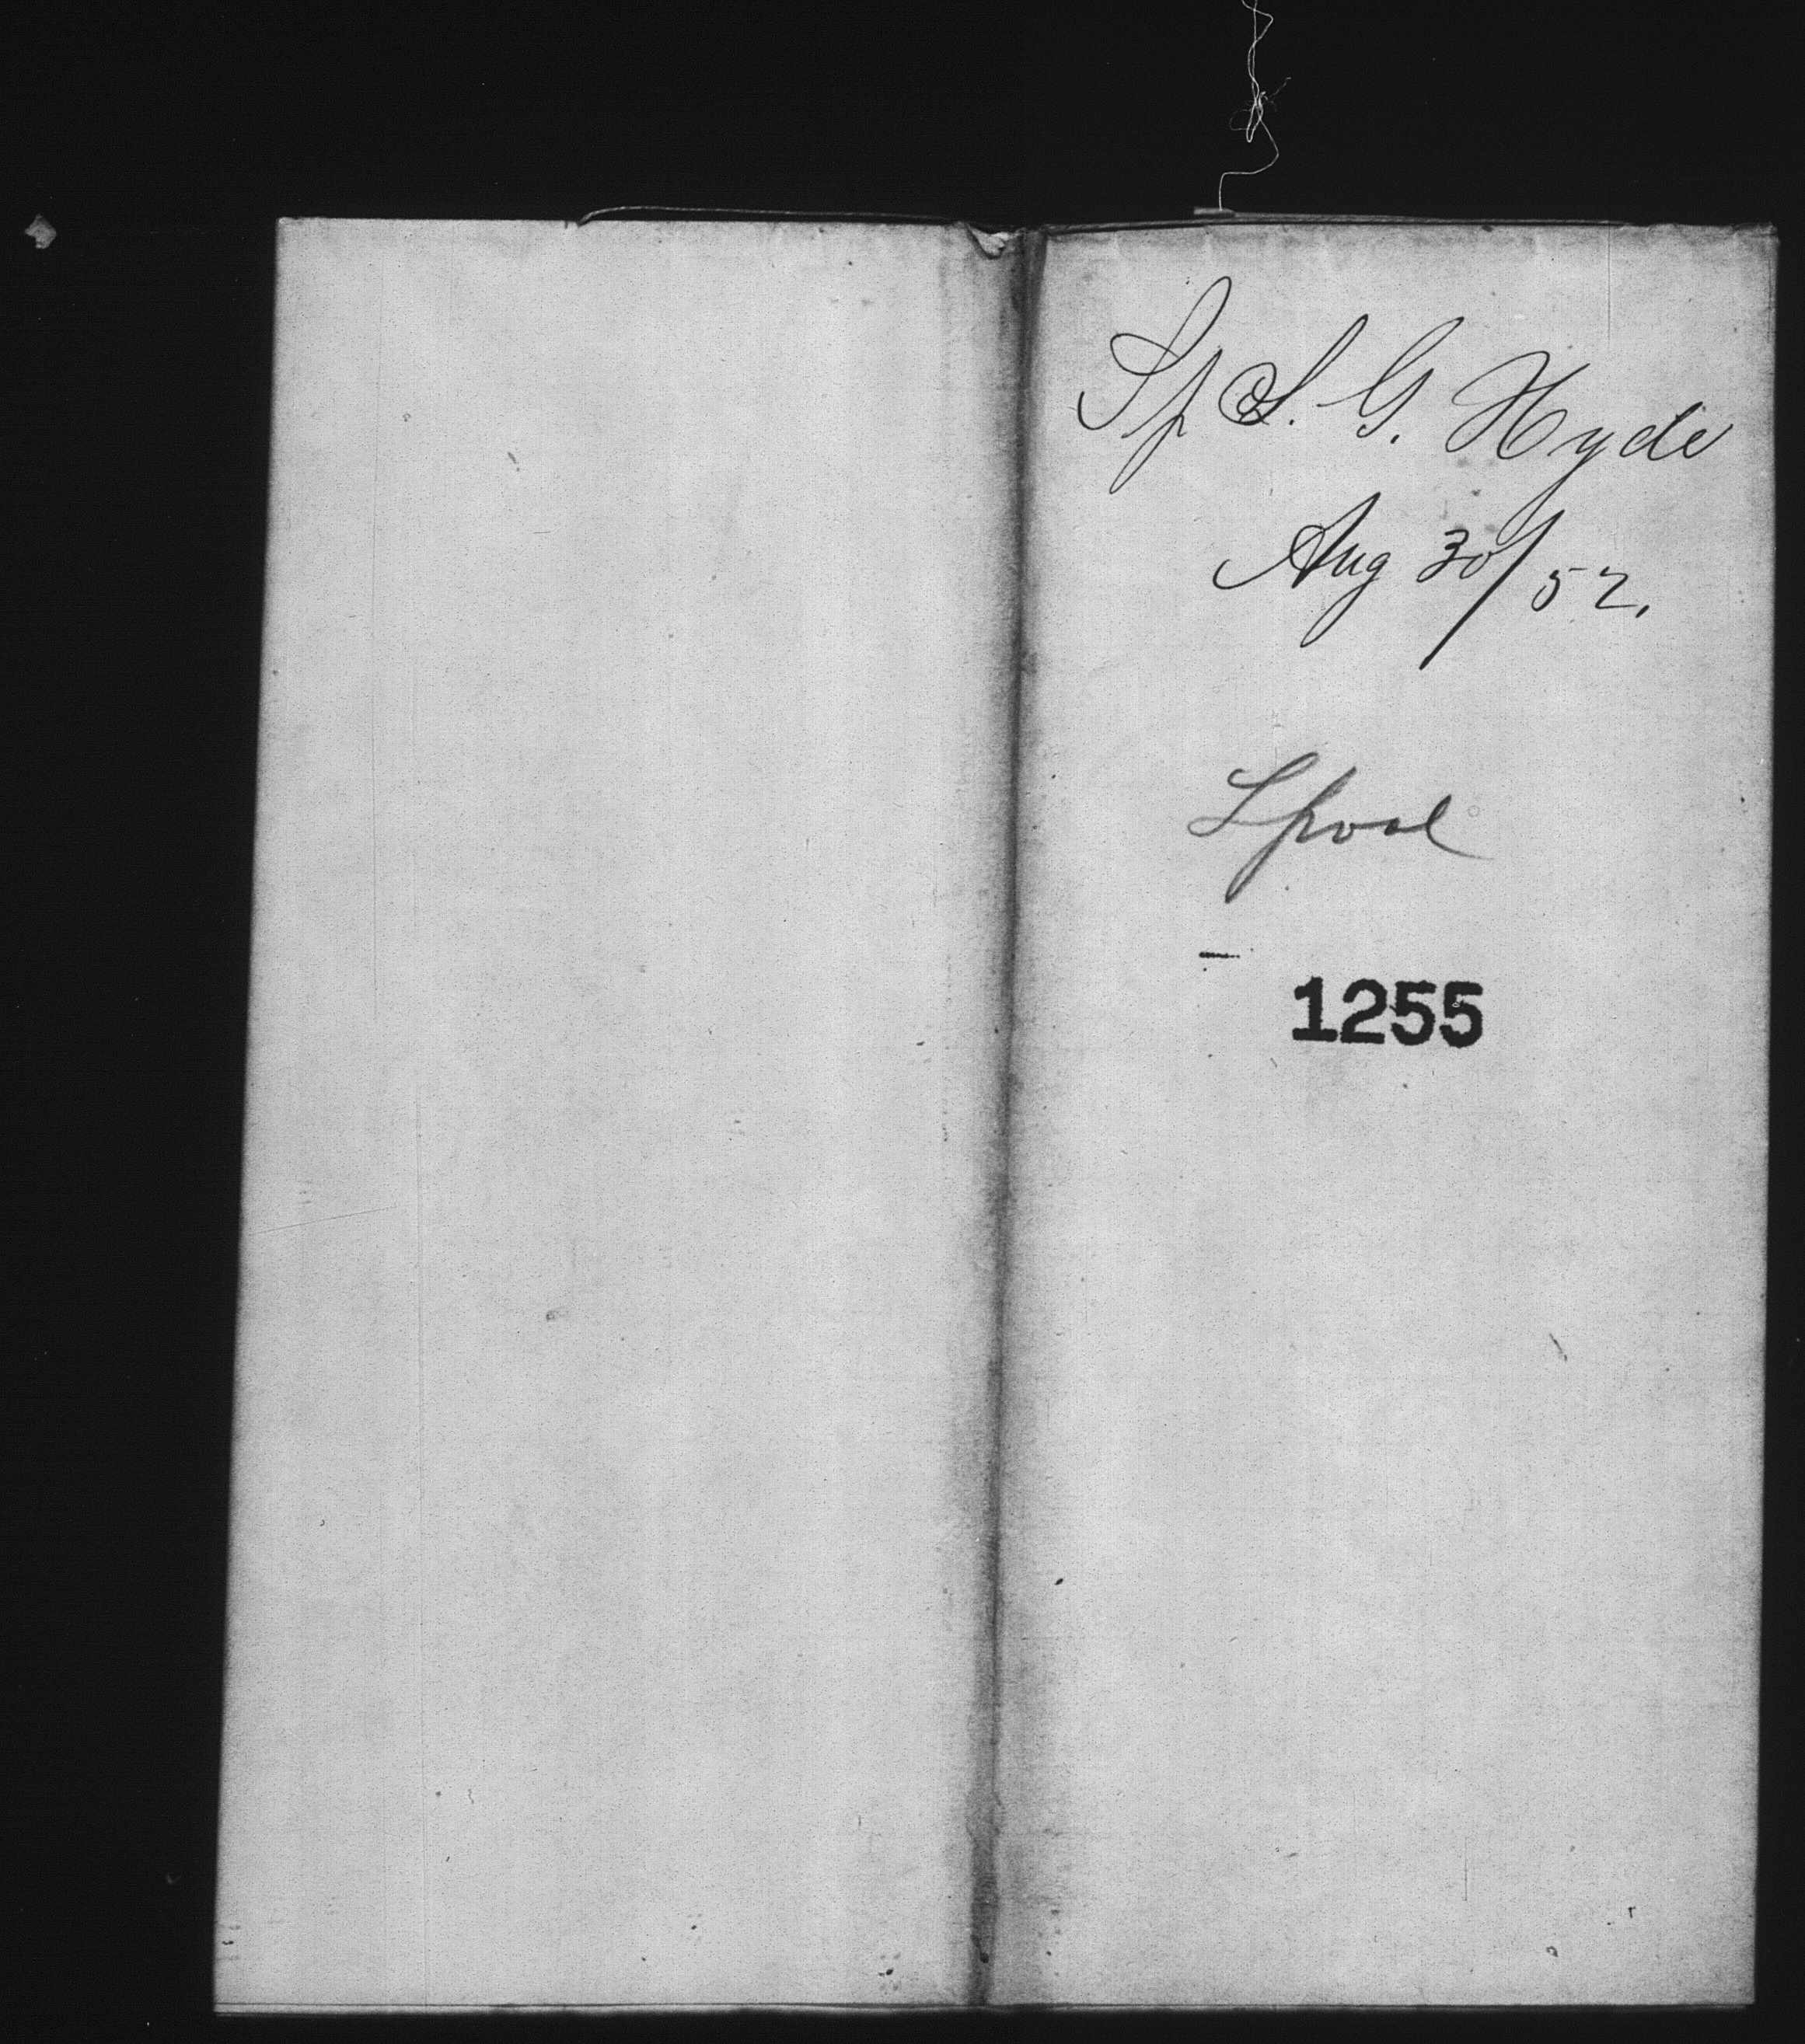 Sp S. G. Hyde
Aug 30/52.
Lpool
1255